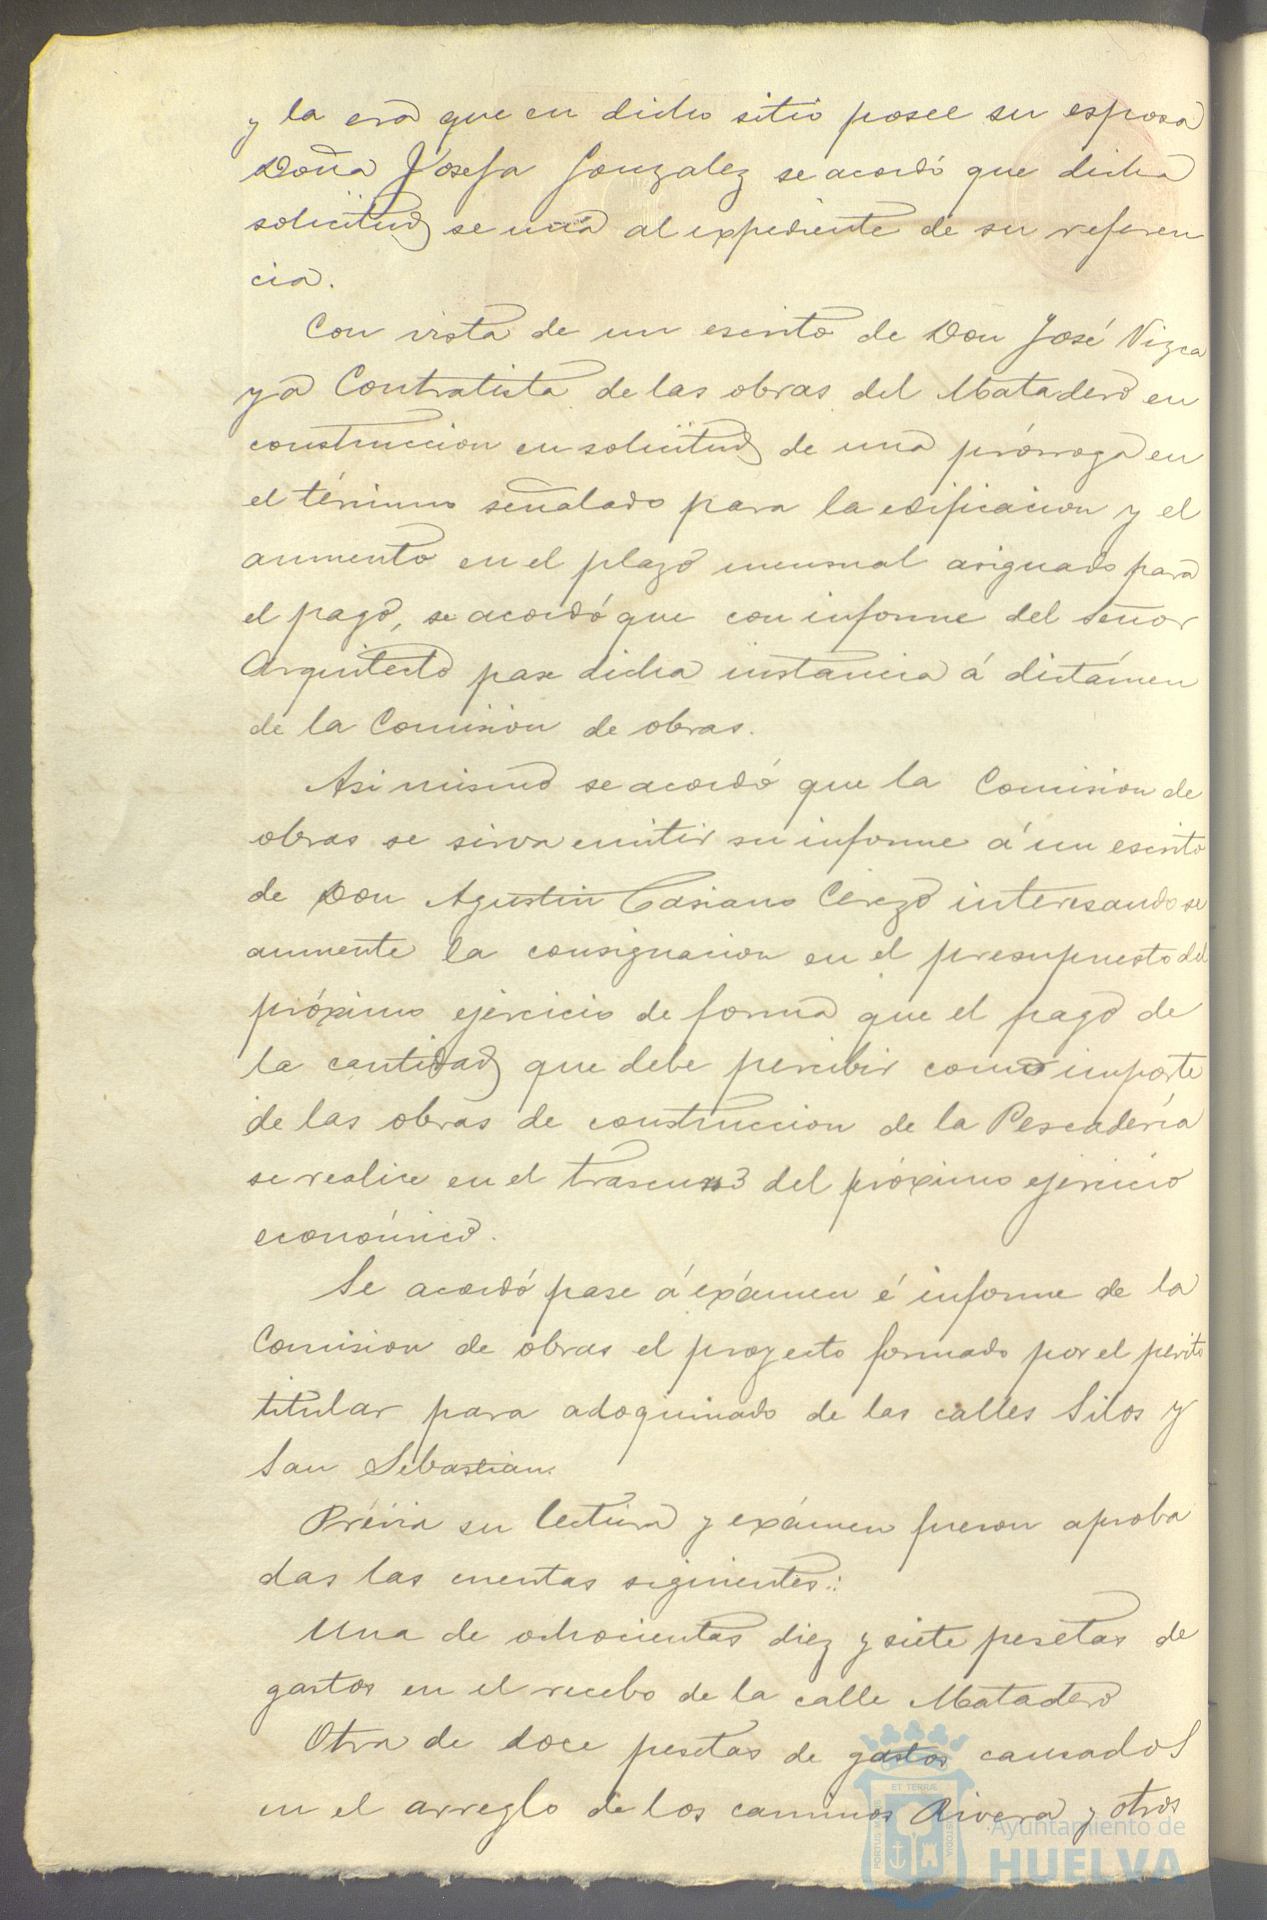 y la era que en dicho sitio posee su esposa
Doña Josefa Gonzalez se acordó que dicha
solicitud se una al expediente de su referen
cia.
Con vista de un escrito de Don José Vizca
ya Contratista de las obras del Matadero en
construccion en solicitud de una prórroga en
el término señalado para la edificacion y el
aumento en el plazo mensual asignado para
el pago, se acordó que con informe del Señor
Arquitecto pase dicha instancia á dictámen
de la Comision de obras.
Asi mismo se acordó que la Comision de
obras se sirva emitir su informe á un escrito
de Don Agustin Casiano Cerezo interesando se
aumente la consignacion en el presupuesto del
próximo ejercicio de forma que el pago de
la cantidad que debe percibir como importe
de las obras de construccion de la Pescadería
se realice en el trascurso del próximo ejercicio
económico.
Se acordó pase á exámen é informe de la
Comision de obras el proyecto formado por el perito
titular para adoquinado de las calles Silos y
San Sebastian.
Prévia su lectura y exámen fueron aproba
das las cuentas siguientes.:
Una de ochocientas diez y siete pesetas de
gastos en el recebo de la calle Matadero
Otra de doce pesetas de gastos causados
en el arreglo de los caminos Rivera y otros
PORTUS MARIS
ET TERRÆ
CUSTODIA
Ayuntamiento de
HUELVA